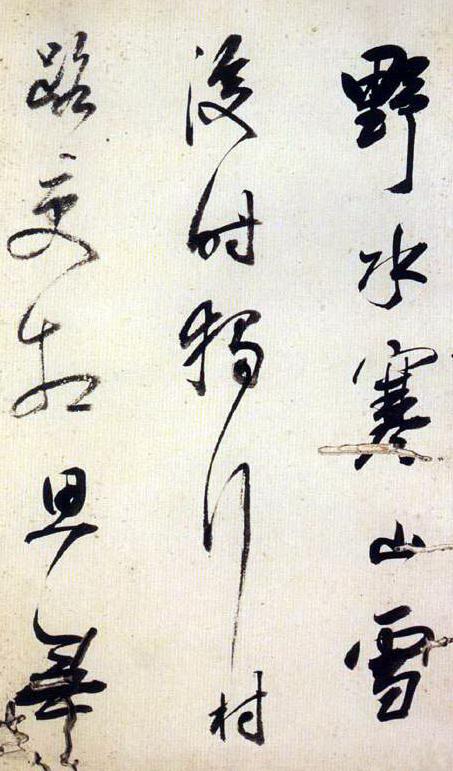 野水寒山雪
後時獨行村
路更相思無